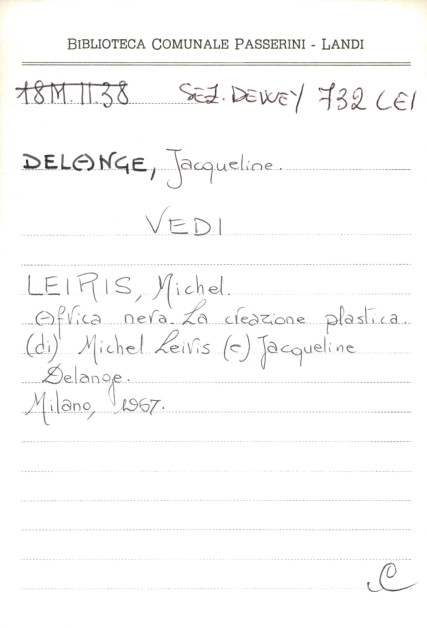 BIBLIOTECA COMUNALE PASSERINI - LANDI
18M.II.38 SEZ. DEWEY 732 LEI
DELANGE, Jacqueline.
VEDI
LEIRIS, Michel.
Africa nera. La creazione plastica.
(di) Michel Leiris (e) Jacqueline
Delange.
Milano, 1967.
C